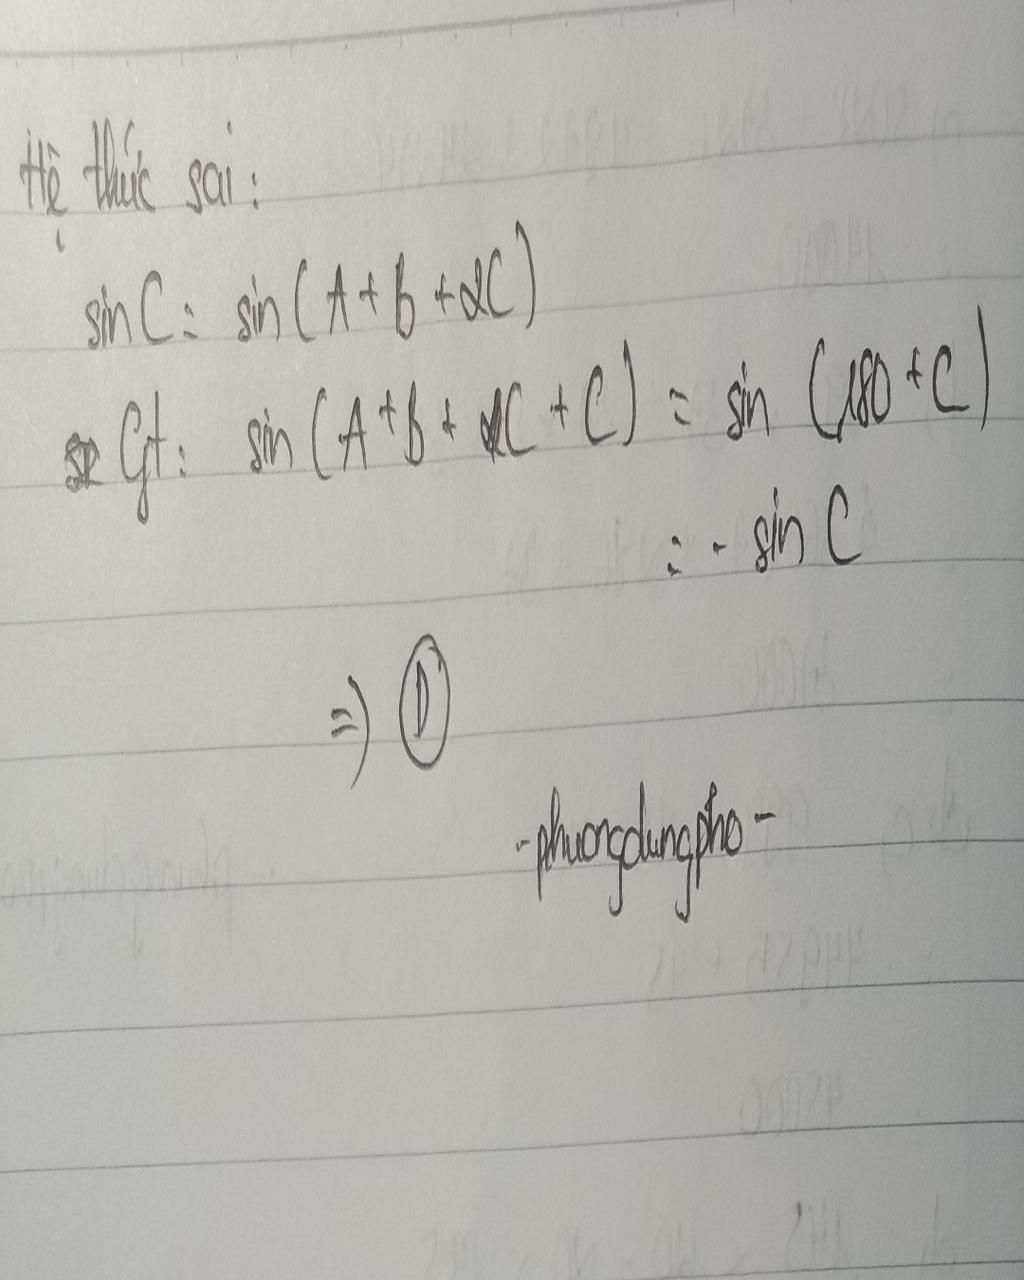 Hệ thức sai:
sin C = sin (A + B + 2C)
Gt: sin (A + B + C + C) = sin (180 + C)
= - sin C
=> D
- phuongdungpho -